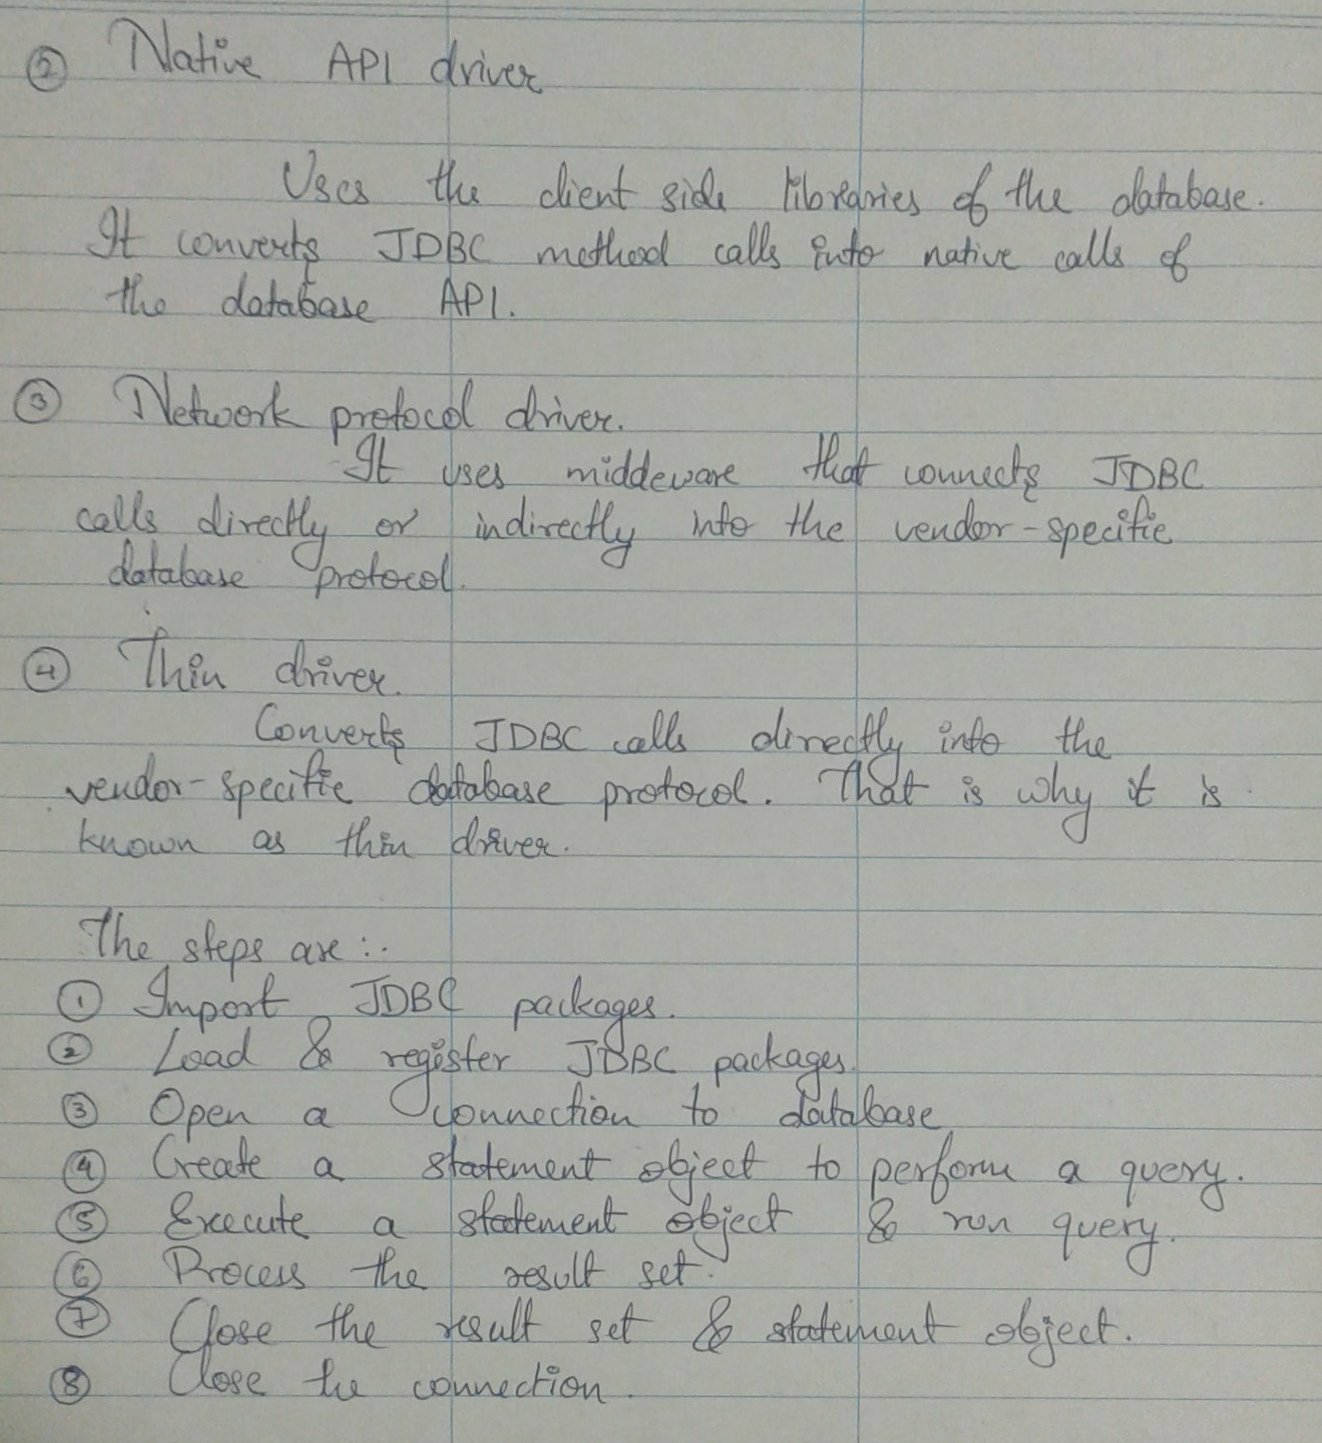 ② Native API driver
Uses the client side libraries of the database.
It converts JDBC method calls into native calls of
the database API.
③ Network protocol driver.
It uses middeware that connects JDBC
calls directly or indirectly into the vendor-specific
database protocol.
④ Thin driver.
Converts JDBC calls directly into the
vendor-specific database protocol. That is why it is
known as thin driver.
The steps are :.
① Import JDBC packages.
② Load & register JDBC packages.
③ Open a connection to database
④ Create a statement object to perform a query.
⑤ Execute a statement object & run query.
⑥ Process the result set.
⑦ Close the result set & statement object.
⑧ Close the connection.